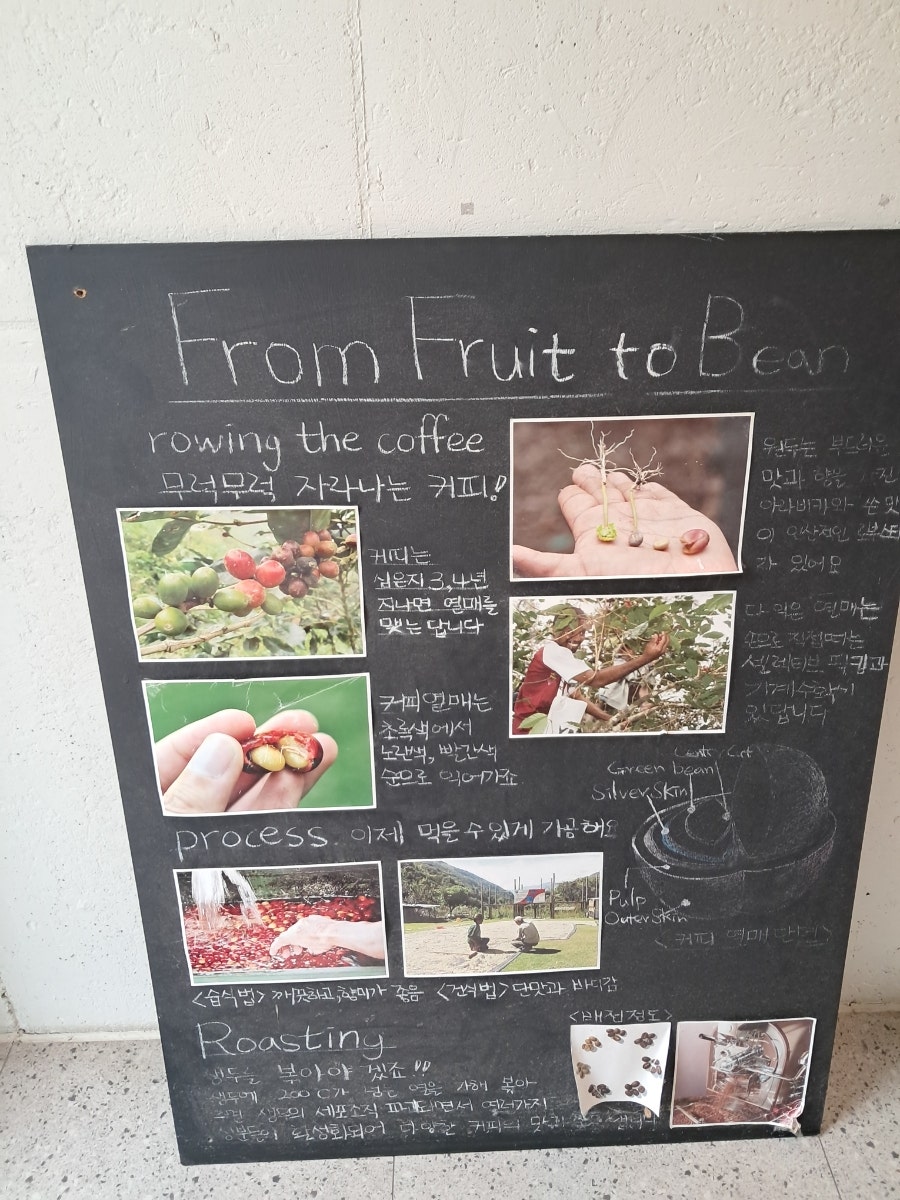 From Fruit to Bean
rowing the coffee
무럭무럭 자라나는 커피!
커피는
심은지 3,4년
지나면 열매를
맺는 답니다
원두는 부드러운
맛과 향을
아라비카와 쓴 맛
이 인상적인
가 있어요
커피 열매는
초록색에서
노란색, 빨간색
순으로 익어가죠
다 익은 열매는
손으로 직접따는
셀렉티브 픽킹과
기계수확이
있답니다
process 이제 먹을 수 있게 가공해요
Center Cut
Green bean
Silver Skin
Pulp
Outer Skin
<커피 열매 단면>
<습식법> 깨끗하고, 향미가 좋음 <건식법> 단맛과 바디감
Roasting
생두를 볶아야 겠죠!!
생두에 200℃가 넘는 열을 가해 볶아
생두의 세포조직 파괴되면서 여러가지
활성화되어 다양한 커피의 맛
<배전정도>